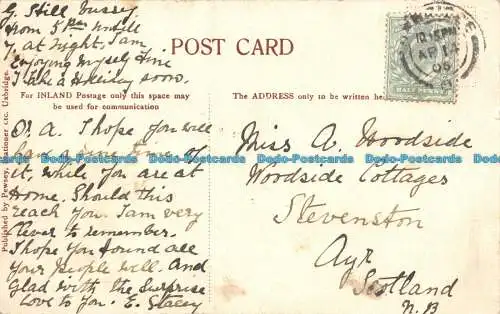 G. Still bussey
from 5 Bar until
7, at Night, I am
Enjoying Myself fine
Take a Holiday soon.
POST CARD
For INLAND Postage only this space may
be used for communication
The ADDRESS only to be written here
HALF PENNY
AP 14
06
D. A. I hope you will
have a fine time of
it, while you are at
Home. Should this
reach you. I am very
clever to remember.
I hope you found all
your People well. And
glad with the surprise
Love to you. E. Stacey
Miss A. Woodside
Woodside Cottages
Stevenston
Ayr
Scotland
N.B
Published by Pewsey, Stationer etc. Uxbridge.
Dodo-Postcards Dodo-Postcards Dodo-Postcards Dodo-Postcards Dodo-Postcards